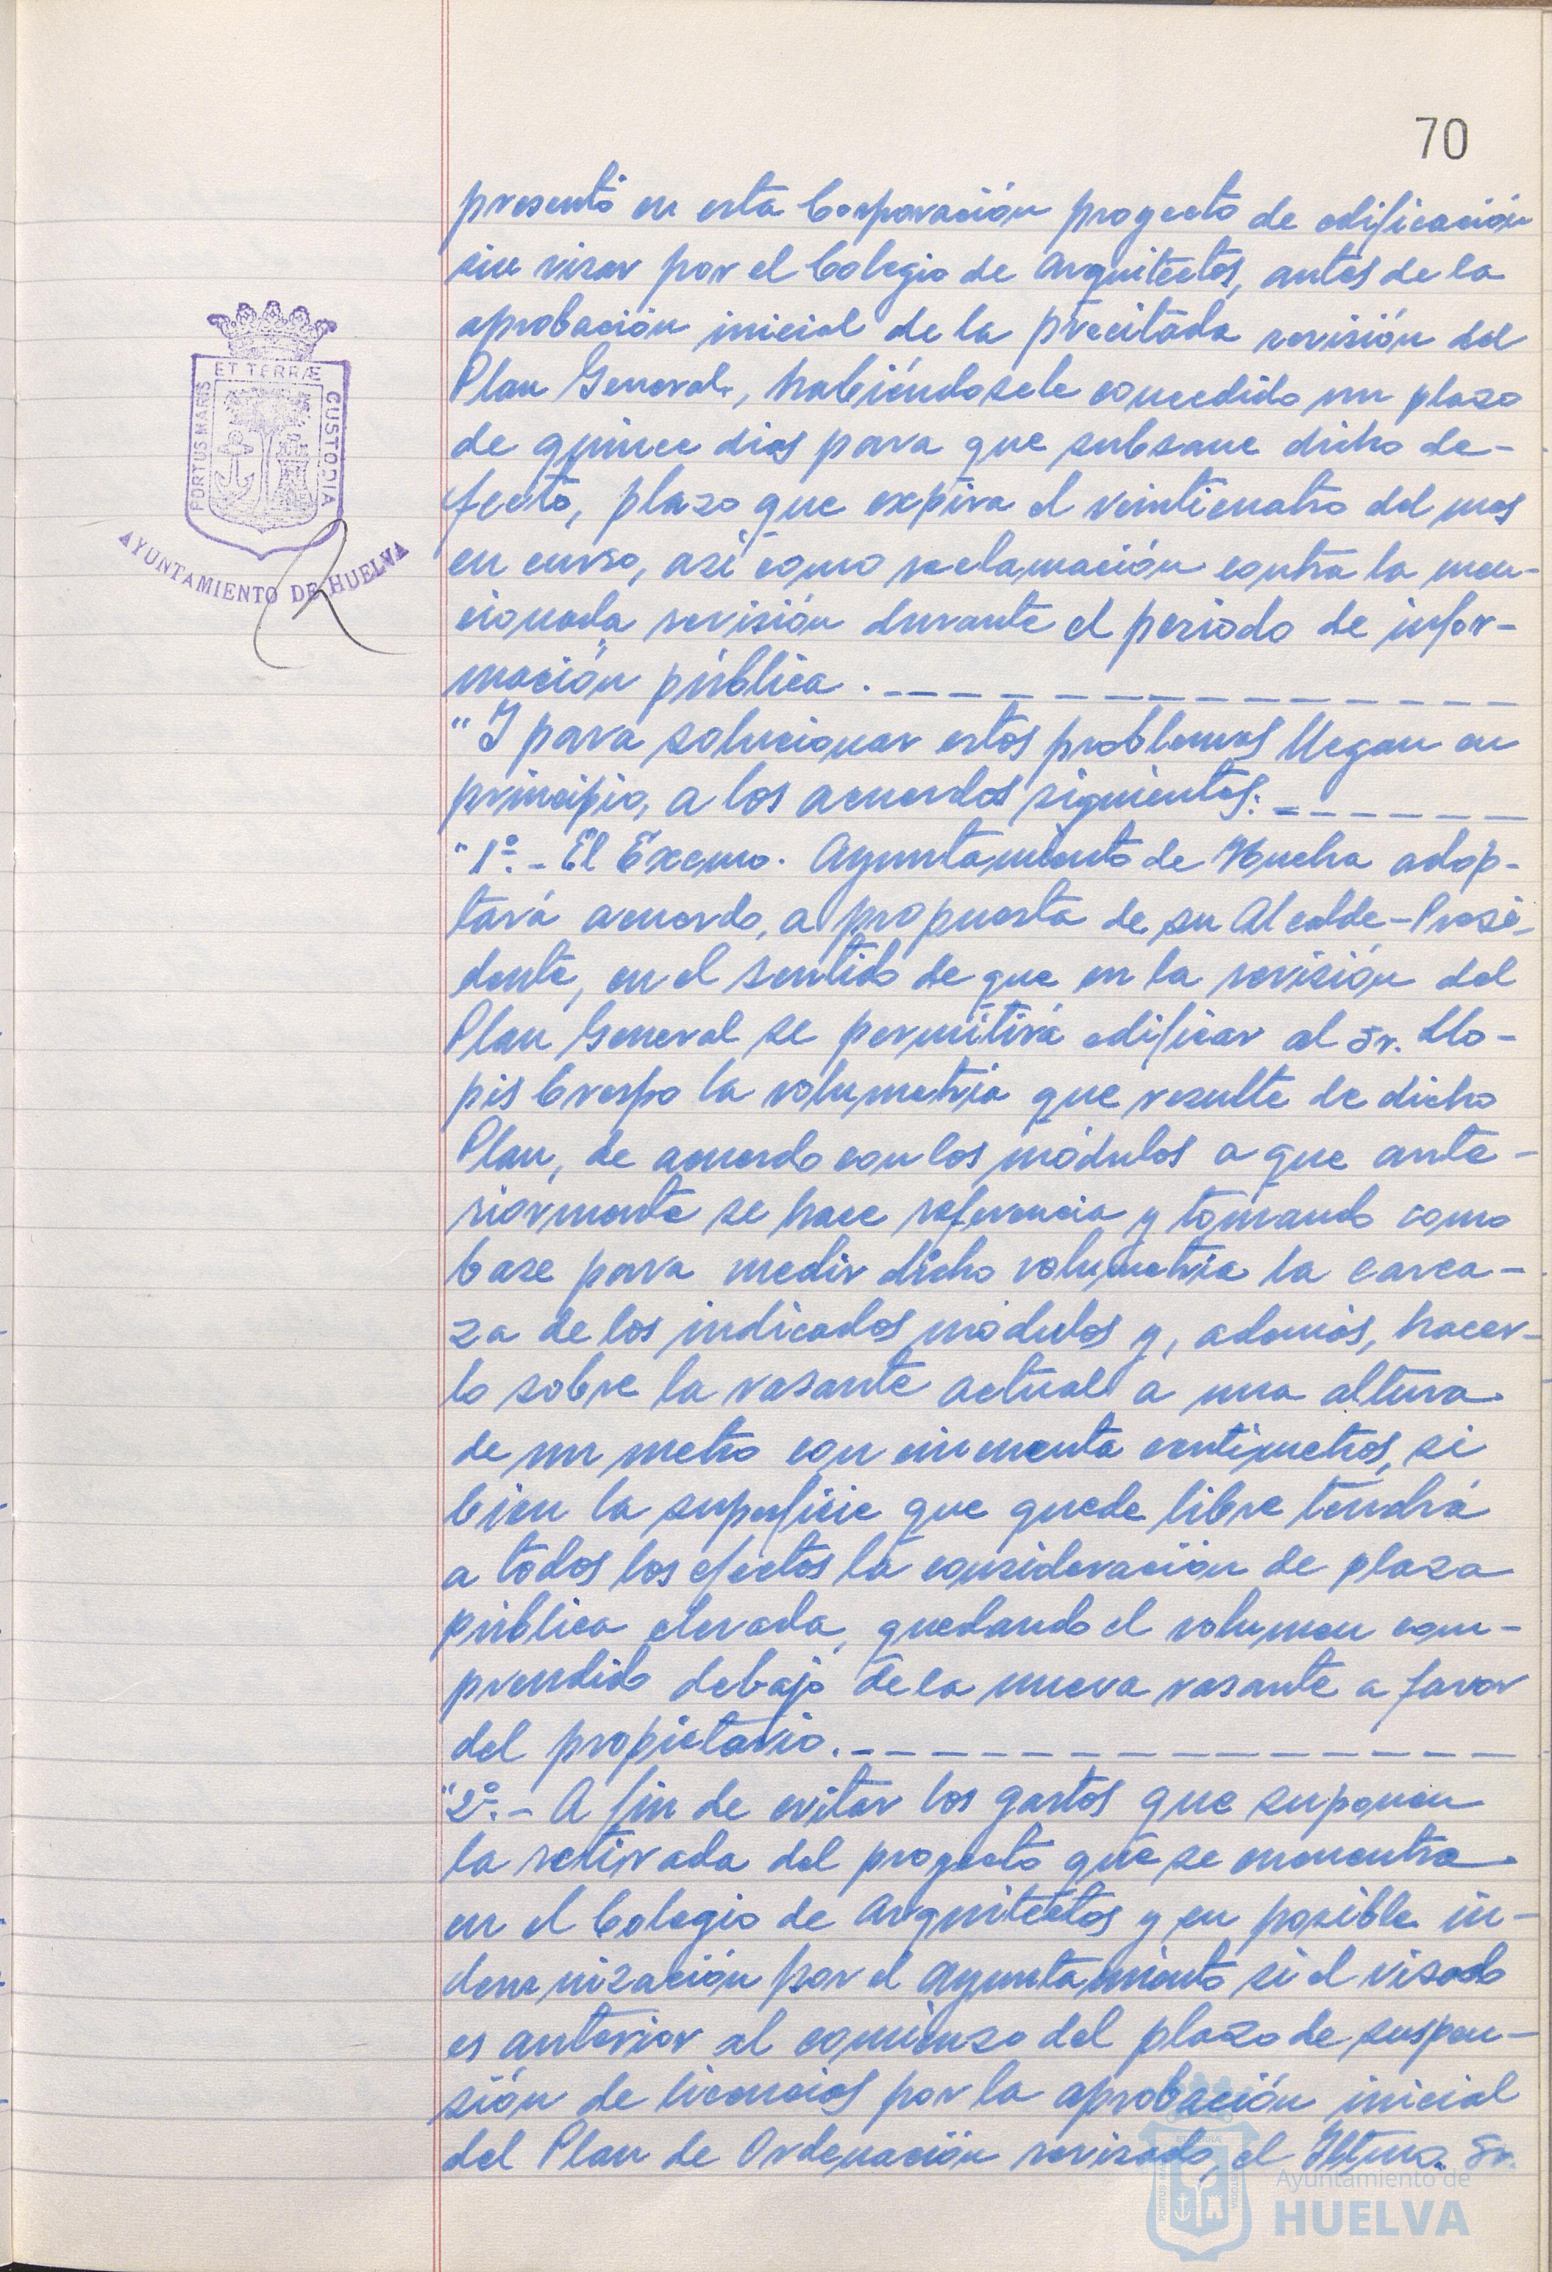 70
presentó en esta Corporación proyecto de edificación
sin visar por el Colegio de Arquitectos, antes de la
aprobación inicial de la precitada revisión del
Plan General, habiéndosele concedido un plazo
de quince dias para que subsane dicho de-
fecto, plazo que expira el veinticuatro del mes
en curso, asi como reclamación contra la men-
cionada revisión durante el periodo de infor-
mación pública.
"Y para solucionar estos problemas llegan en
principio, a los acuerdos siguientes:
"1º.- El Excmo. Ayuntamiento de Huelva adop-
tará acuerdo, a propuesta de su Alcalde-Presi-
dente, en el sentido de que en la revisión del
Plan General se permitirá edificar al Sr. Llo-
pis Crespo la volumetria que resulte de dicho
Plan, de acuerdo con los módulos a que ante-
riormente se hace referencia y tomando como
base para medir dicho volumetria la carca-
za de los indicados módulos y, además, hacer-
lo sobre la rasante actual a una altura
de un metro con cincuenta centimetros, si
bien la superficie que quede libre tendrá
a todos los efectos la consideración de plaza
pública elevada, quedando el volumen com-
prendido debajo de la nueva rasante a favor
del propietario.
"2º.- A fin de evitar los gastos que suponen
la retirada del proyecto que se encuentra
en el Colegio de Arquitectos y su posible in-
demnización por el Ayuntamiento si el visado
es anterior al comienzo del plazo de suspen-
sión de licencias por la aprobación inicial
del Plan de Ordenación revisado, el Iltmo. Sr.
PORTUS MARIS ET TERRÆ CUSTODIA
AYUNTAMIENTO DE HUELVA
Ayuntamiento de
HUELVA